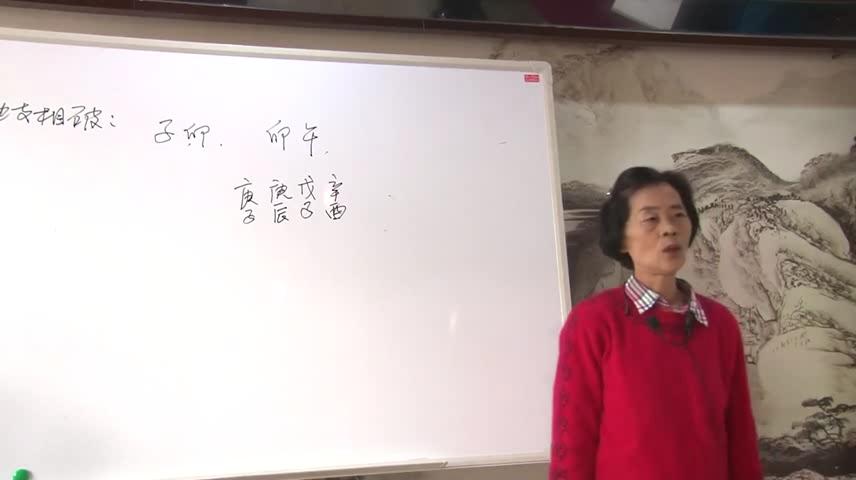 支相破： 子卯. 卯午.
庚庚戊辛
子辰子酉